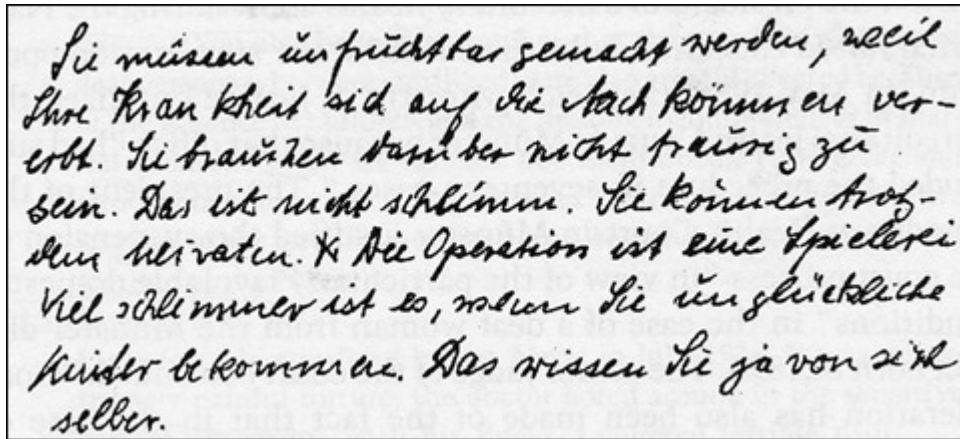 Sie müssen unfruchtbar gemacht werden, weil
Ihre Krankheit sich auf die Nachkommen ver-
erbt. Sie brauchen darüber nicht traurig zu
sein. Das ist nicht schlimm. Sie können trotz-
dem heiraten. Die Operation ist eine Spielerei
Viel schlimmer ist es, wenn Sie unglückliche
Kinder bekommen. Das wissen Sie ja von sich
selber.